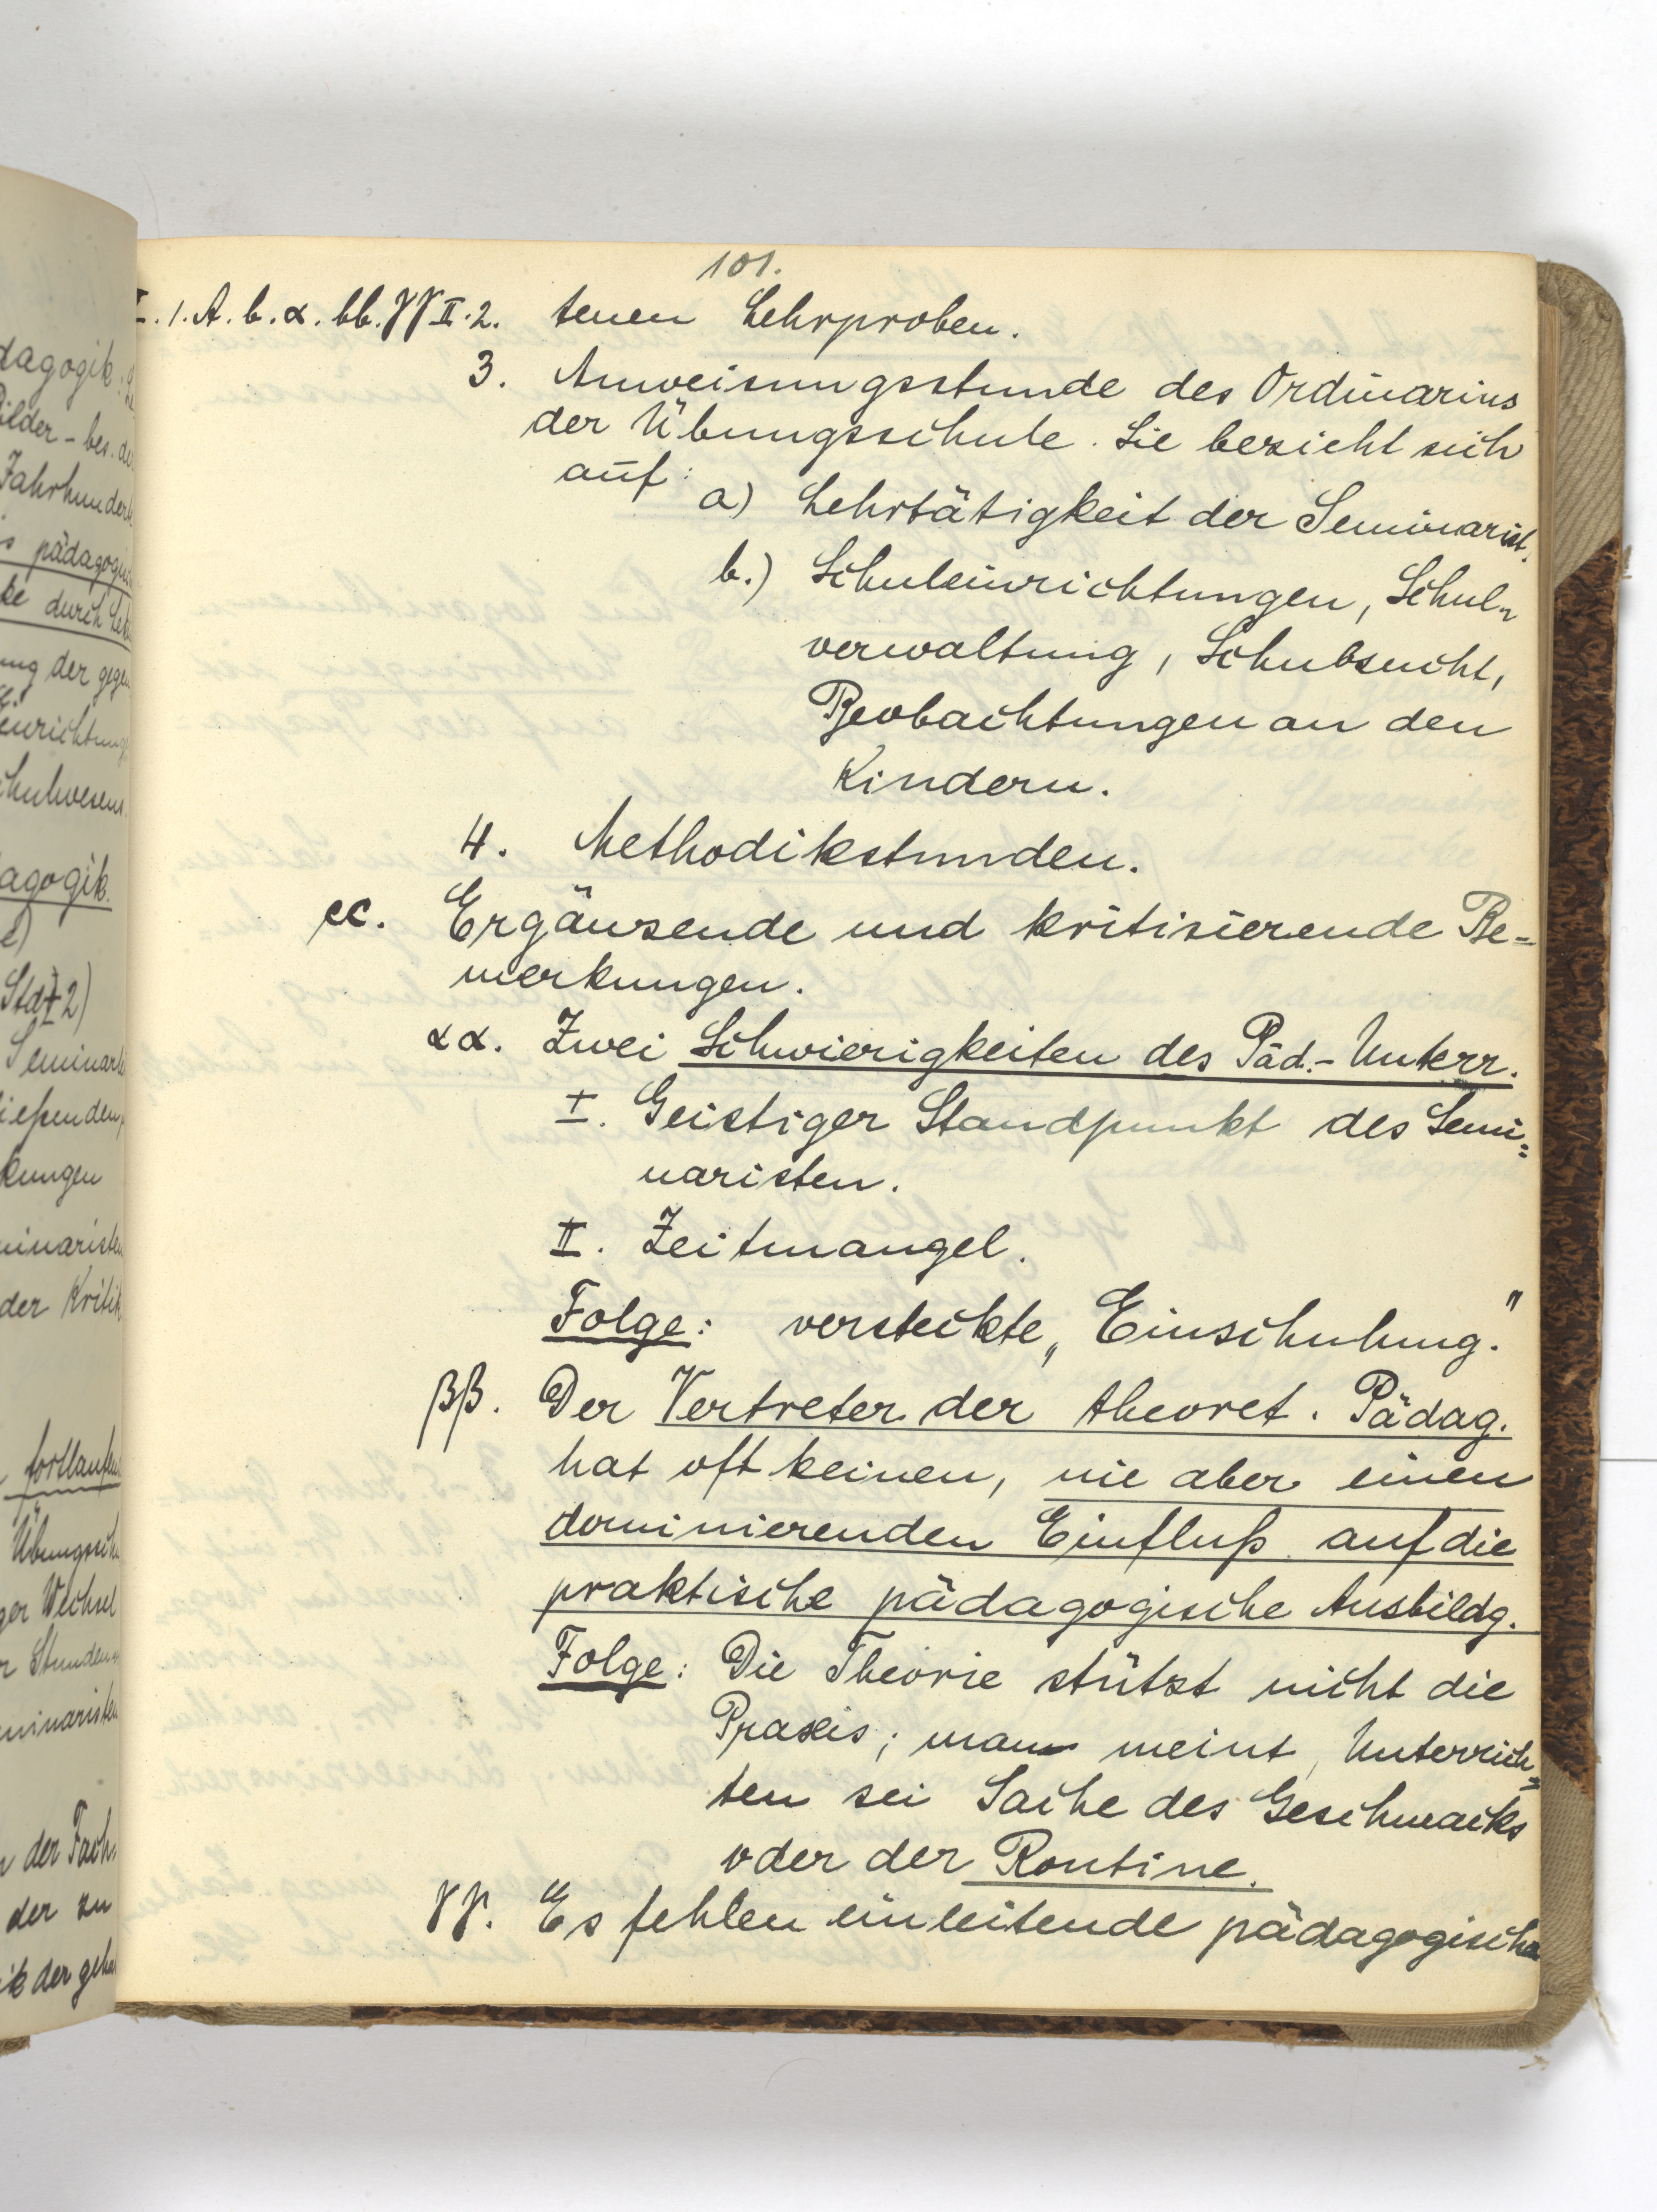 101.
I. 1. A. b. α. bb. γγ II. 2. tenen Lehrproben.
3. Anweisungsstunde des Ordinarius
der Übungsschule. Sie bezieht sich
auf:
a) Lehrtätigkeit der Seminarist.
b.) Schuleinrichtungen, Schul=
verwaltung, Schulzucht,
Beobachtungen an den
Kindern.
4. Methodikstunden.
cc. Ergänzende und kritisierende Be=
merkungen.
αα. Zwei Schwierigkeiten des Päd.-Unterr.
I. Geistiger Standpunkt des Semi=
naristen.
II. Zeitmangel.
Folge: versteckte „Einschulung."
ββ. Der Vertreter der theoret. Pädag.
hat oft keinen, nie aber einen
dominierenden Einfluß auf die
praktische pädagogische Ausbildg.
Folge: Die Theorie stützt nicht die
Praxis; man meint, Unterrich=
ten sei Sache des Geschmacks
oder der Routine.
γγ. Es fehlen einleitende pädagogische
dagogik.
Bilder - bes. de
Jahrhundert
pädagogis
durch
ung der gege
enrichtung
chulwesens.
agogik.
Std 2)
Seminar
ießenden
kungen
minaristen
der Kritik
fortlaufen
Übungssch
ger Wechsel
r Stunden
minaristen
der Fach
der zu
ik der geha